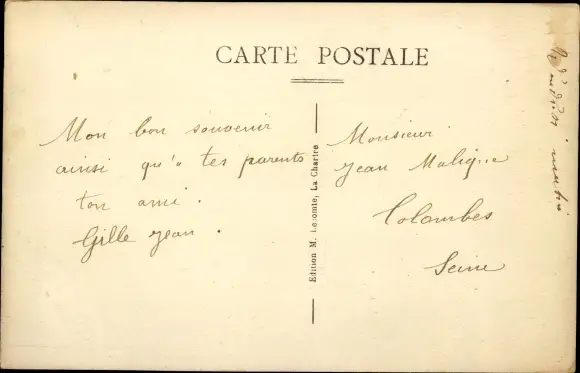 CARTE POSTALE
Mon bon souvenir
ainsi qu'a tes parents
ton ami.
Gille Jean.
Edition M. Lecomte, La Chartre
Monsieur
Jean Maligne
Colombes
Seine